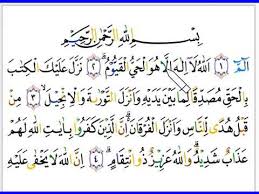 بِسْمِ اللهِ الرَّحْمٰنِ الرَّحِيْمِ
الٓمّٓ ﴿١﴾ اللهُ لَآ اِلٰهَ اِلَّا هُوَ الْحَيُّ الْقَيُّوْمُ ﴿٢﴾ نَزَّلَ عَلَيْكَ الْكِتٰبَ
بِالْحَقِّ مُصَدِّقًا لِّمَا بَيْنَ يَدَيْهِ وَاَنْزَلَ التَّوْرٰىةَ وَالْاِنْجِيْلَ ﴿٣﴾ مِنْ
قَبْلُ هُدًى لِّلنَّاسِ وَاَنْزَلَ الْفُرْقَانَ اِنَّ الَّذِيْنَ كَفَرُوْا بِاٰيٰتِ اللهِ لَهُمْ
عَذَابٌ شَدِيْدٌ وَاللهُ عَزِيْزٌ ذُو انْتِقَامٍ ﴿٤﴾ اِنَّ اللهَ لَا يَخْفٰى عَلَيْهِ